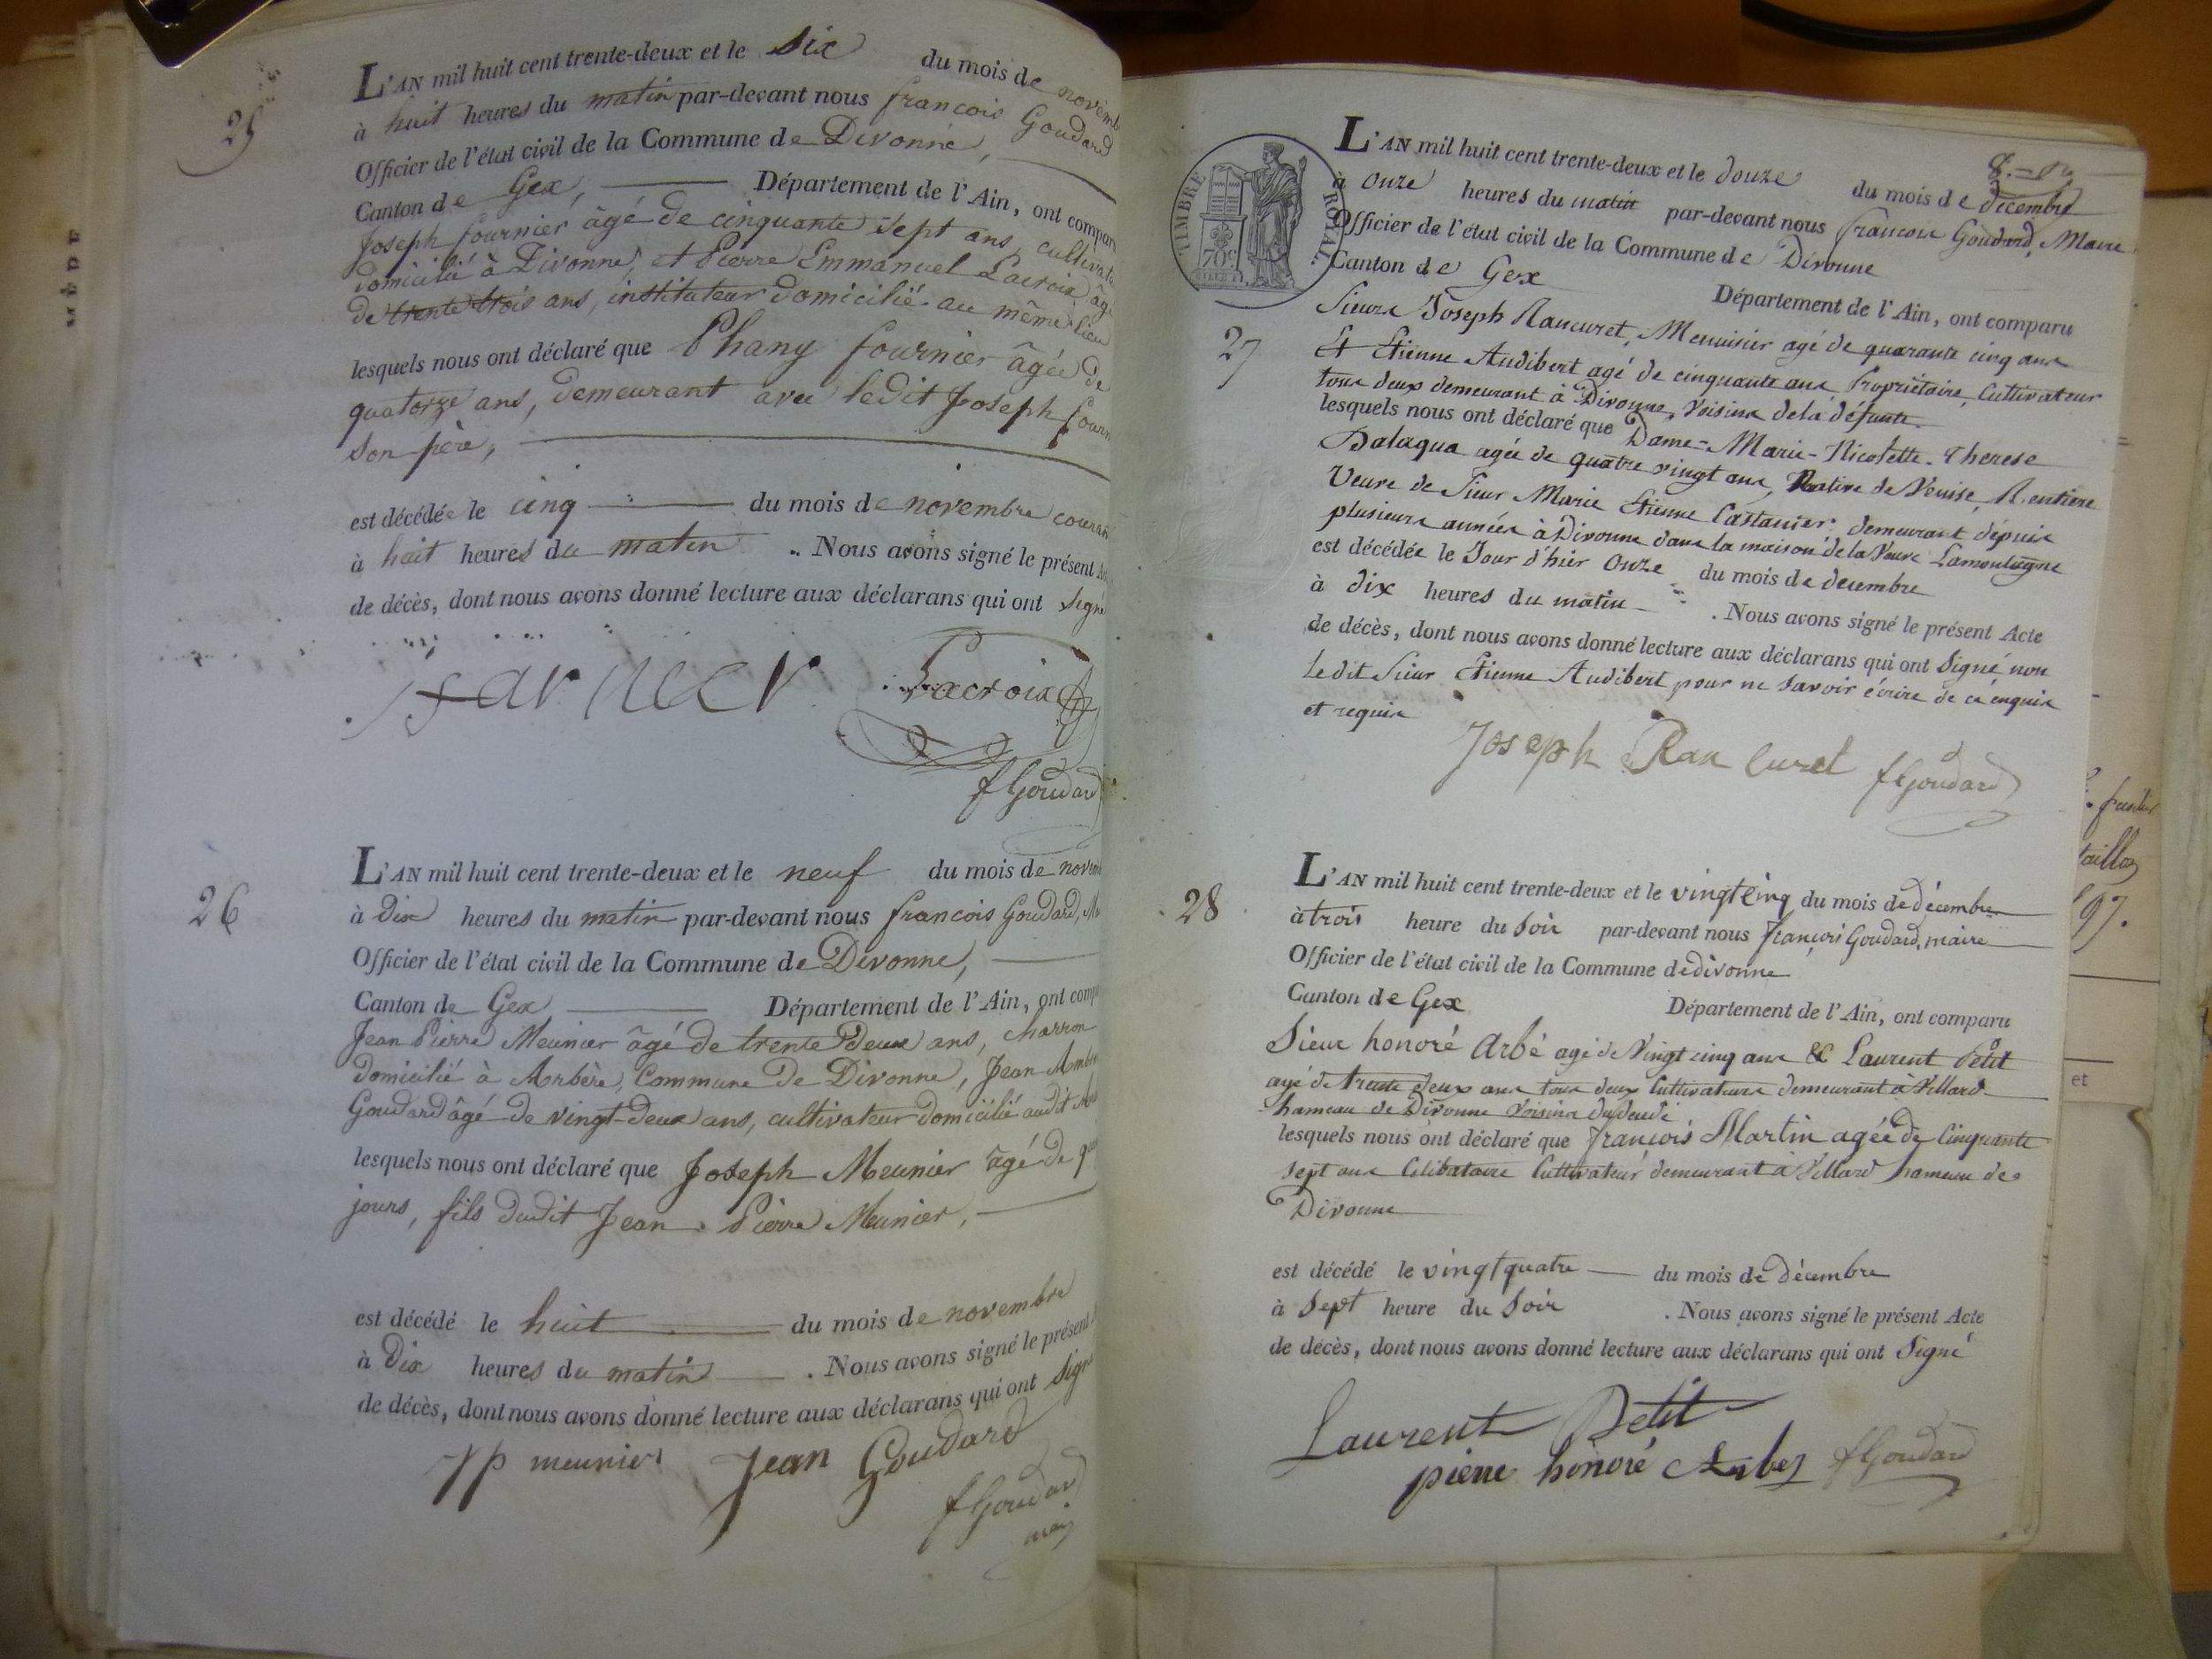 25
L'AN mil huit cent trente-deux et le Six du mois de novemb
à huit heures du matin par-devant nous francois Goudard
Officier de l'état civil de la Commune de Divonne,
Canton de Gex, Département de l'Ain, ont compar
Joseph fournier âgé de cinquante sept ans, cultivate
domicilié à Divonne, et Pierre Emmanuel Lacroix âgé
de trente trois ans, instituteur domicilié au même lieu
lesquels nous ont déclaré que Phany fournier âgée de
quatorze ans, demeurant avec ledit Joseph fourn
son père,
est décédée le cinq du mois de novembre couran
à huit heures du matin . Nous avons signé le présent
de décès, dont nous avons donné lecture aux déclarans qui ont signé
Lacroix
fGoudard
26
L'AN mil huit cent trente-deux et le neuf du mois de novem
à Dix heures du matin par-devant nous francois Goudard,
Officier de l'état civil de la Commune de Divonne,
Canton de Gex Département de l'Ain, ont comp
Jean Pierre Meunier âgé de trente Deux ans, charron
domicilié à Arbère, Commune de Divonne, Jean
Goudard âgé de vingt-deux ans, cultivateur domicilié audit
lesquels nous ont déclaré que Joseph Meunier âgé de
jours, fils dudit Jean Pierre Meunier,
est décédé le huit du mois de novembre
à Dix heures du matin . Nous avons signé le présent
de décès, dont nous avons donné lecture aux déclarans qui ont sign
Jp meunier Jean Goudard
fGoudard
TIMBRE ROYAL.
70c
27
L'AN mil huit cent trente-deux et le douze du mois de décembre
à onze heures du matin par-devant nous francois Goudard, Maire
Officier de l'état civil de la Commune de Divonne
Canton de Gex Département de l'Ain, ont comparu
Sieurs Joseph Rancuret, Menuisier agé de quarante cinq ans
Et Etienne Audibert agé de cinquante ans Propriétaire, Cultivateur
tous deux demeurant à Divonne, Voisins de la défunte.
lesquels nous ont déclaré que Dame-Marie-Nicolette-Therese
Balaqua agée de quatre vingt ans, Native de Venise, Rentiere
Veuve de Sieur Marie Etienne Castanier; demeurant depuis
plusieurs années à Divonne dans la maison de la Veuve
est décédée le Jour d'hier Onze du mois de decembre
à dix heures du matin . Nous avons signé le présent Acte
de décès, dont nous avons donné lecture aux déclarans qui ont Signé, non
le dit Sieur Etienne Audibert pour ne savoir écrire de ce enquis
et requis
Joseph Rancuret fGoudard
28
L'AN mil huit cent trente-deux et le vingtcinq du mois de décembre
à trois heure du Soir par-devant nous françois Goudard, maire
Officier de l'état civil de la Commune de divonne
Canton de Gex Département de l'Ain, ont comparu
Sieur honoré Arbé agé de Vingt cinq ans & Laurent Petit
agé de trente deux ans tous deux Cultivateurs demeurant à Villard
hameau de Divonne Voisins du
lesquels nous ont déclaré que françois Martin agée de Cinquante
sept ans Célibataire Cultivateur demeurant à Villard hameau de
Divonne
est décédé le vingt quatre du mois de décembre
à Sept heure du Soir . Nous avons signé le présent Acte
de décès, dont nous avons donné lecture aux déclarans qui ont Signé
Laurent Petit
pierre honoré Arbez fGoudard
97.
et